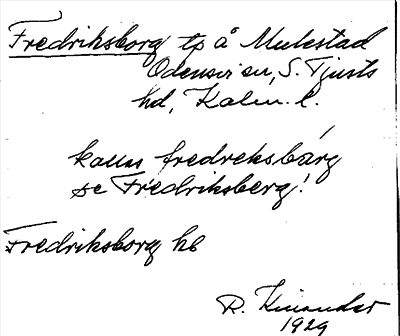 Fredriksborg tp å Mulestad
Odensvi sn, S. Tjusts
hd, Kalm. l.
kallas fredreksbárg
se Fredriksberg!
Fredriksborg kb
R. Kinander
1929